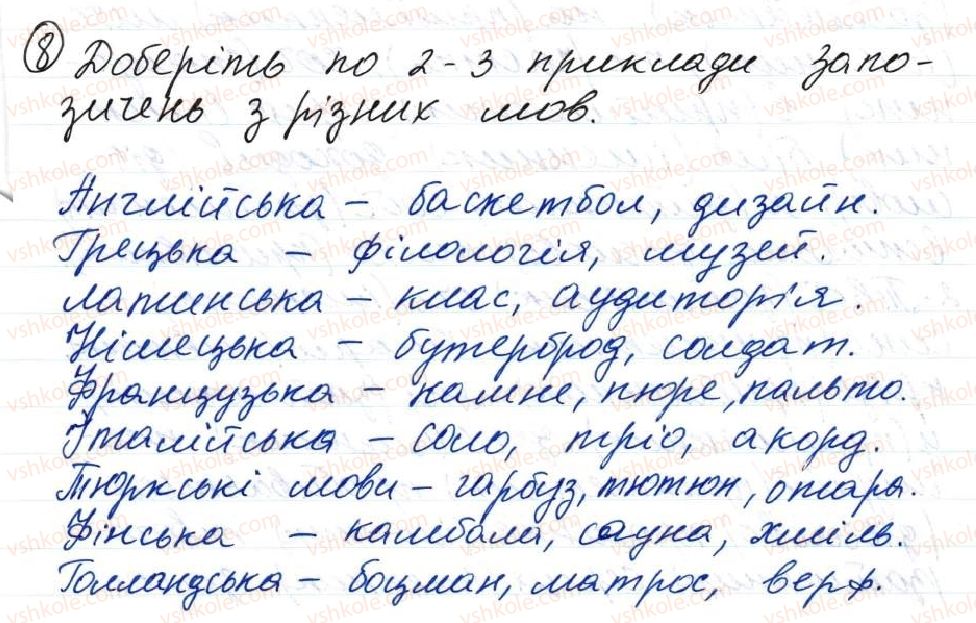 8 Доберіть по 2-3 приклади запо-
зичень з різних мов.
Англійська - баскетбол, дизайн.
Грецька - філологія, музей.
латинська - клас, аудиторія.
Німецька - бутерброд, солдат.
Французька - кашне, пюре, пальто.
Італійська - соло, тріо, акорд.
Тюркські мови - гарбуз, тютюн, отара.
Фінська - камбала, сауна, хміль.
Голландська - боцман, матрос, верф.